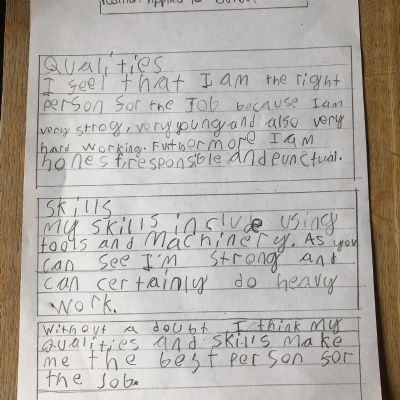 Position Applied for
Qualities
I feel that I am the right
person for the Job because I am
very strog, very young and also very
hard working. Futhermore I am
honest, responsible and punctual.
Skills
my skills include using
tools and machinery. As you
can see I'm strong and
can certainly do heavy
work.
Without a doubt I think my
qualities and skills make
me the best person for
the Job.